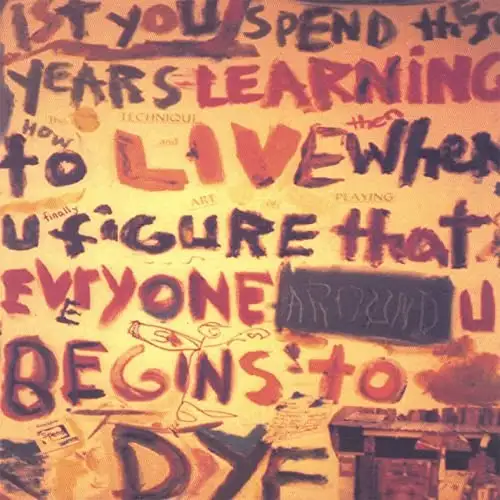 1ST YOU SPEND these
YEARS LEARNING
The TECHNIQUE and
HOW to LIVE then When
ART of PLAYING
U finally figure that
EVERYONE AROUND U
BEGINS to
DYE